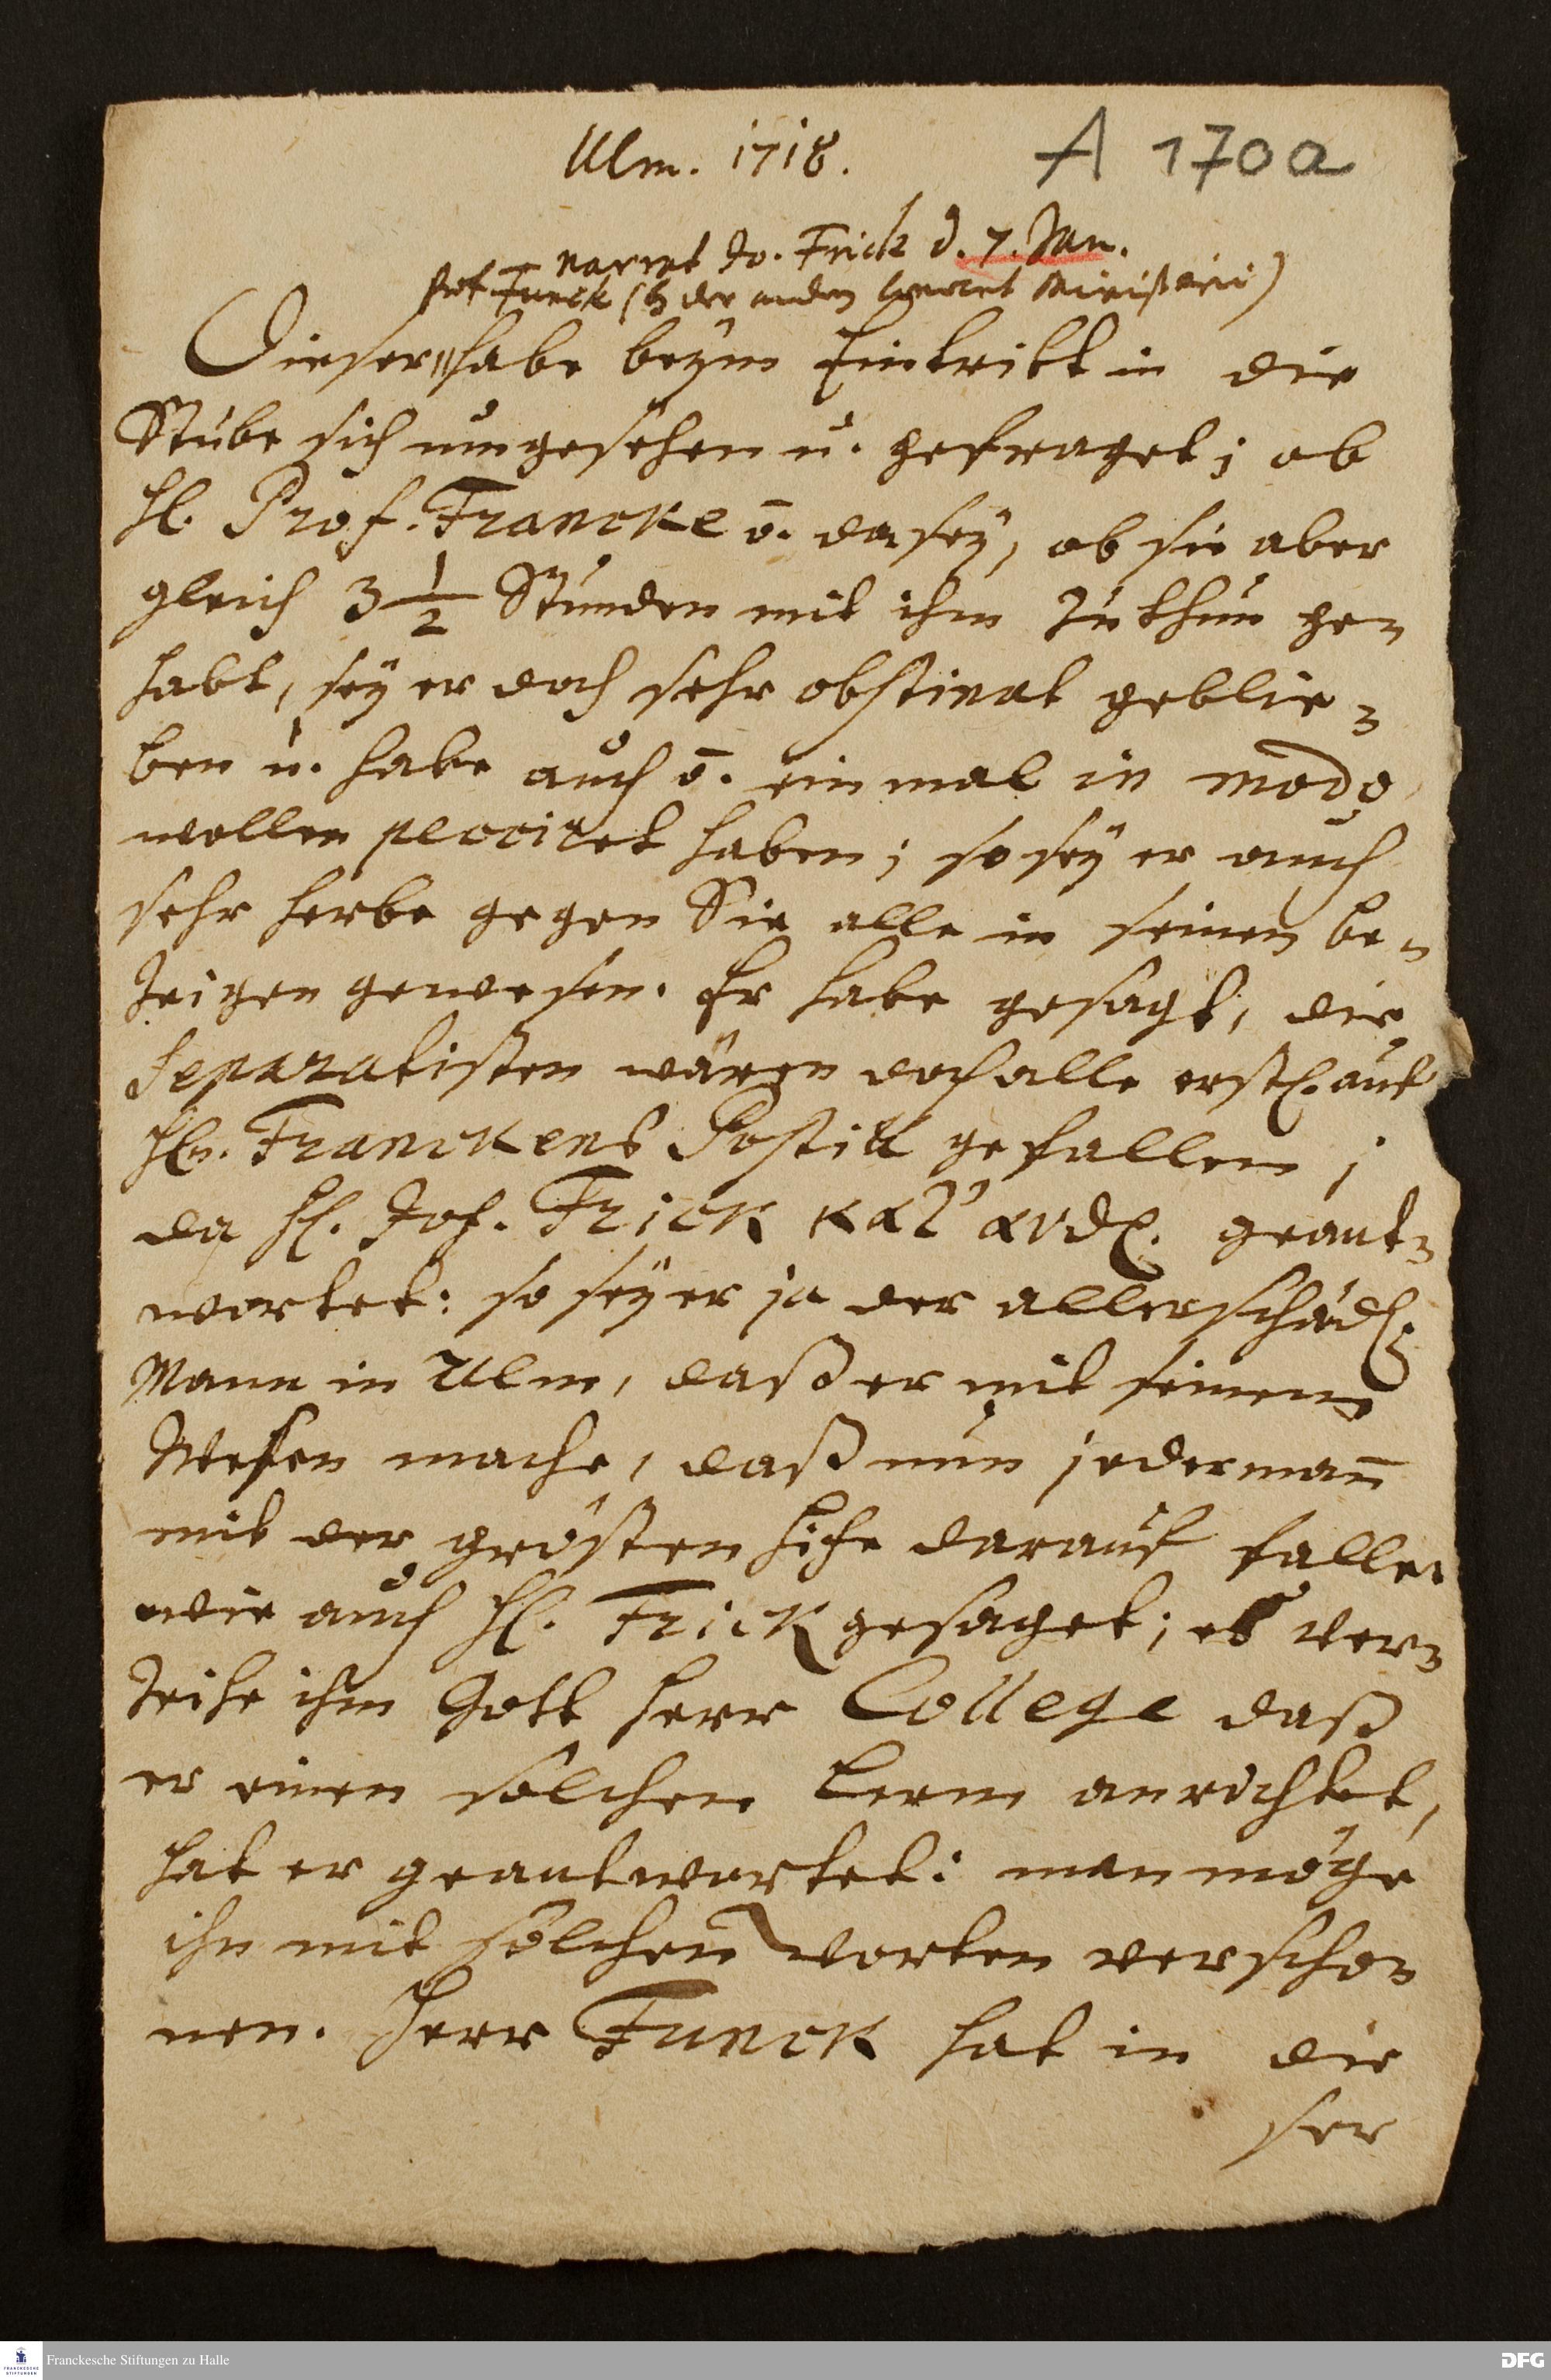 Ulm. 1718.
A 170a
narret Jo. Frick d. 7. Jan.
Funck (h der andern Ministerii)
Dieser habe beÿm Eintritt in die
Stube sich umgesehen u. gefraget; ob
H. Prof. Francke õ. da seÿ, ob sie aber
gleich 3 1/2 Stunden mit ihm zuthun ge-
habt, seÿ er doch sehr obstinat geblie-
ben u. habe auch õ. ein mal in modo
wollen pecciret haben; so seÿ er auch
sehr herbe gegen Sie alle in seinen be-
zeigen gewesen. Er habe gesagt, die
Separatisten wären doch alle erstl. auf
Hn. Franckens Postill gefallen;
da H. Joh. Frick κατ' ανδρ. geant-
wortet: so seÿ er ja der allerschädl.
Mann in Ulm, daß er mit seinem
Wesen mache, daß nun jederman̄
mit der grösten Hize darauf falle.
wie auch H. Frick gesaget; es ver-
zeihe ihm Gott Herr College daß
er einen solchen Lerm anrichtet,
hat er geantwortet: man möge
ihn mit solchen Worten verscho-
nen. Herr Funck hat in die
ser
Franckesche Stiftungen zu Halle
DFG